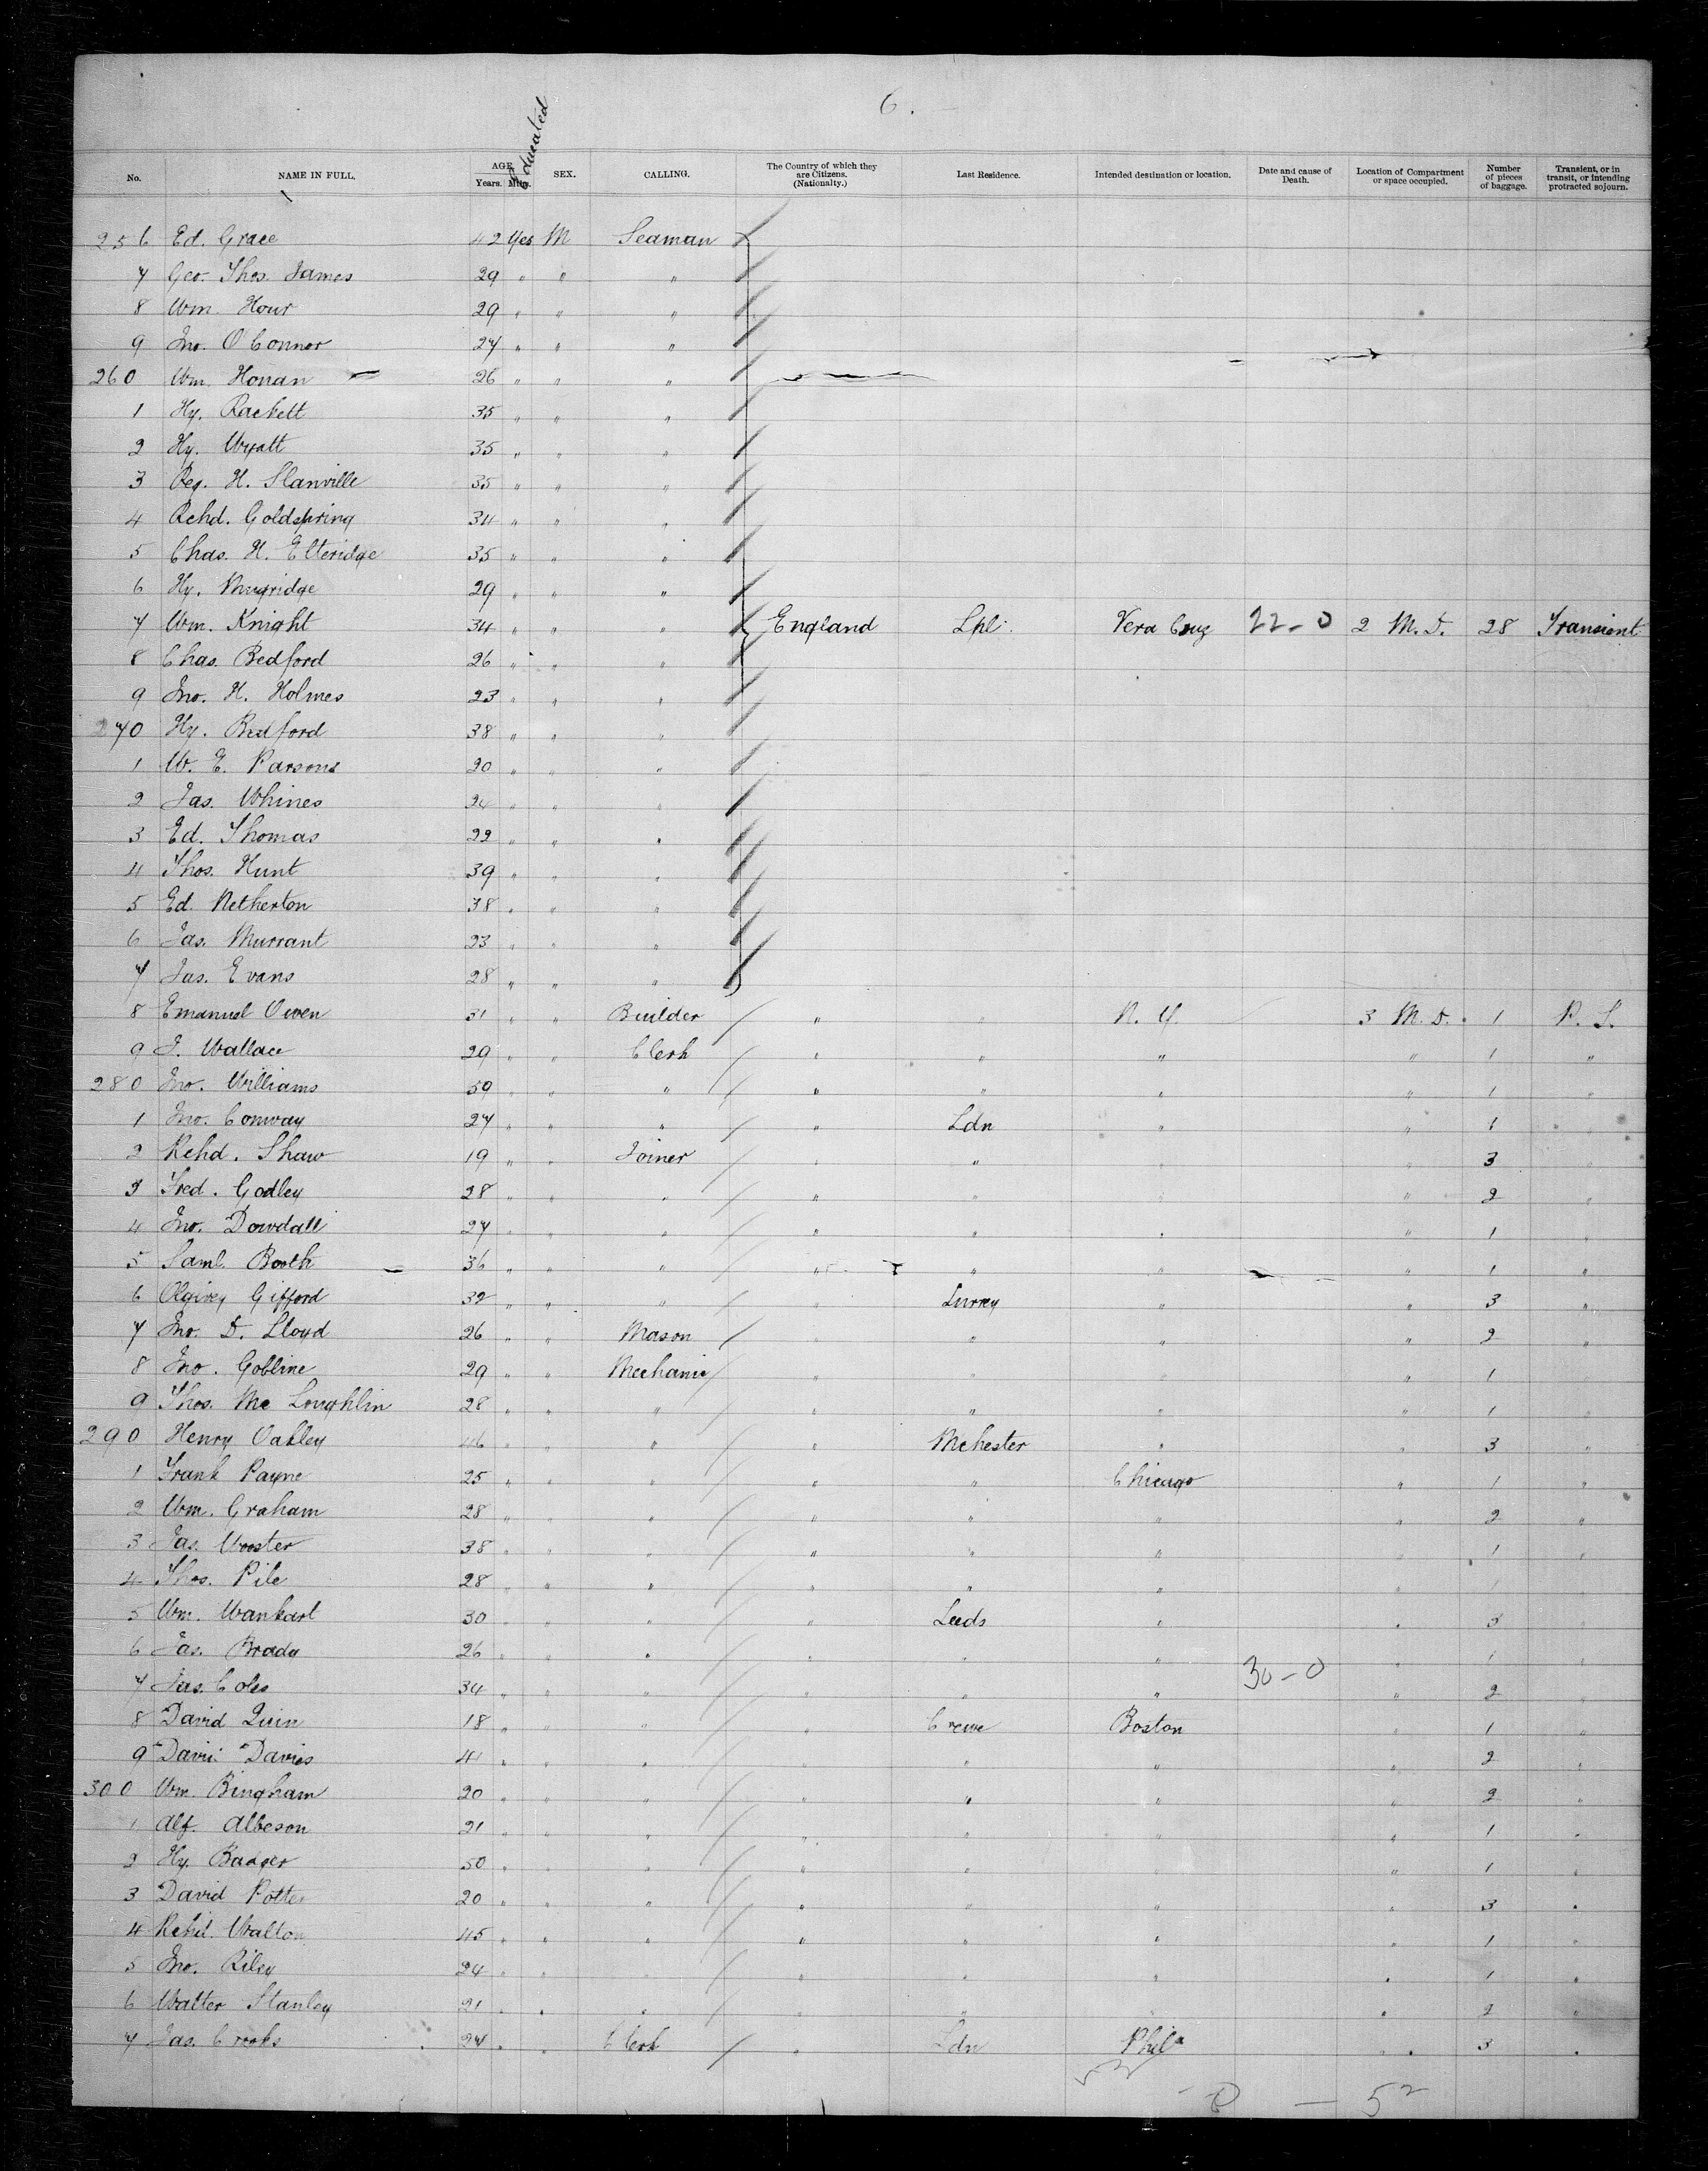 6.
Educated
No. NAME IN FULL. AGE. Years. Mths. SEX. CALLING. The Country of which they are Citizens. (Nationalty.) Last Residence. Intended destination or location. Date and cause of Death. Location of Compartment or space occupied. Number of pieces of baggage. Transient, or in transit, or intending protracted sojourn.
256 Ed. Grace 42 Yes M Seaman
7 Geo. Thos. James 29 " " "
8 Wm. Hour 29 " " "
9 Jno. O'Connor 27 " " "
260 Wm. Honan 26 " " "
1 Hy. Rackett 35 " " "
2 Hy. Wyatt 35 " " "
3 Reg. H. Slanville 35 " " "
4 Rchd. Goldspring 34 " " "
5 Chas. H. Elteridge 35 " " "
6 Hy. Mugridge 29 " " "
7 Wm. Knight 34 " " " England Lpl. Vera Cruz 22-0 2 M.D. 28 Transient
8 Chas. Bedford 26 " " "
9 Jno. H. Holmes 23 " " "
270 Hy. Bedford 38 " " "
1 W. E. Parsons 20 " " "
2 Jas. Whines 24 " "
3 Ed. Thomas 22 " " "
4 Thos. Hunt 39 " " "
5 Ed. Netherton 38 " " "
6 Jas. Murrant 23 " " "
7 Jas. Evans 28 " " "
8 Emanuel Owen 31 " " Builder " " N. Y. 3 M.D. 1 P. S.
9 J. Wallace 29 " " Clerk " " " " 1 "
280 Jno. Williams 50 " " " " " " " 1 "
1 Jno. Conway 27 " " " " Ldn " " 1 "
2 Rchd. Shaw 19 " " Joiner " " " " 3 "
3 Fred. Godley 28 " " " " " " " 2 "
4 Jno. Dowdall 27 " " " " " " " 1 "
5 Saml. Booth 36 " " " " " " " 1 "
6 Gifford 32 " " " " Surrey " " 3 "
7 Jno. D. Lloyd 26 " " Mason " " " " 2 "
8 Jno. Gobline 29 " " Mechanic " " " " 1 "
9 Thos. Mc Loughlin 28 " " " " " " " 1 "
290 Henry Oakley 46 " " " " Mchester " " 3 "
1 Frank Payne 25 " " " " " Chicago " 1 "
2 Wm. Graham 28 " " " " " " " 2 "
3 Jas. Wooster 38 " " " " " " " 1 "
4 Thos. Pile 28 " " " " " " " 1 "
5 Wm. Wankarl 30 " " " " Leeds " " 3 "
6 Jas. Brady 26 " " " " " " " 1 "
7 Jas. Coles 34 " " " " " " 30-0 " 2 "
8 David Quin 18 " " " " Crewe Boston " 1 "
9 David Davies 41 " " " " " " " 2 "
300 Wm. Bingham 20 " " " " " " " 2 "
1 Alf. Albeson 21 " " " " " " " 1 "
2 Hy. Badger 50 " " " " " " " 1 "
3 David Potter 20 " " " " " " " 3 "
4 Rchd. Walton 45 " " " " " " " 1 "
5 Jno. Riley 24 " " " " " " " 1 "
6 Walter Stanley 21 " " " " " " " 2 "
7 Jas. Crooks 27 " " Clerk " Ldn Phila " 3 "
52
0 — 52